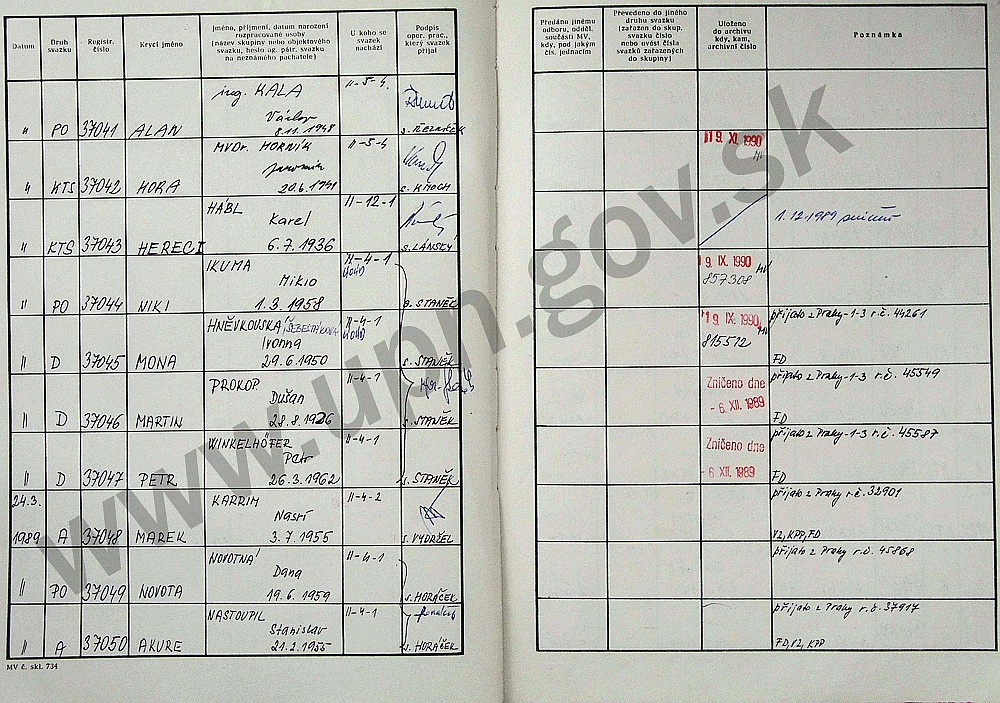 Datum
Druh svazku
Registr. číslo
Krycí jméno
Jméno, příjmení, datum narození
rozpracované osoby
(název skupiny nebo objektového
svazku, heslo ag. pátr. svazku
na neznámého pachatele)
U koho se
svazek
nachází
Podpis
oper. prac.,
který svazek
přijal
Předáno jinému
odboru, odděl.
součásti MV,
kdy, pod jakým
čís. jednacím
Převedeno do jiného
druhu svazku
(zařazen do skup.
svazku číslo
nebo uvést čísla
svazků zařazených
do skupiny)
Uloženo
do archivu
kdy, kam,
archivní číslo
Poznámka
ing. KALA II-5-4
Václav
" PO 37041 ALAN 8.11.1948
MVDr. HORNÍK II-5-4
Jaromír 19. XI. 1990
" KTS 37042 HORA 20.6.1941 s. KNOCH
HÁBL II-12-1
Karel 1.12.1989
" KTS 37043 HERECI 6.7.1936 s. LÁNSKÝ
IKUMA II-4-1 19. IX. 1990
Mikio 857308
" PO 37044 NIKI 1.3.1958 s. STANĚK
HNĚVKOVSKÁ/ŠEBESTÁKOVÁ II-4-1 19. IX. 1990 přijato z Prahy-1-3 r.č. 44261
Ivonna 815512
" D 37045 MONA 29.6.1950 s. STANĚK FD
PROKOP II-4-1 Zničeno dne přijato z Prahy-1-3 r.č. 45549
Dušan - 6. XII. 1989
" D 37046 MARTIN 28.8.1926 s. STANĚK FD
WINKELHÖFER II-4-1 Zničeno dne přijato z Prahy-1-3 r.č. 45587
Petr - 6. XII. 1989
" D 37047 PETR 26.3.1962 s. STANĚK FD
24.3. KARRIM II-4-2 přijato z Prahy r.č. 32901
Nasrí
1989 A 37048 MAREK 3.7.1955 s. VYDRŽEL V2, KPP, FD
NOVOTNÁ II-4-1 přijato z Prahy r.č. 45868
Dana
" PO 37049 NOVOTA 19.6.1959 s. HORÁČEK
NASTOUPIL II-4-1 přijato z Prahy r.č. 37917
Stanislav
" A 37050 AKURE 21.2.1955 s. HORÁČEK FD, V2, KPP
MV č. skl. 734
www.upn.gov.sk